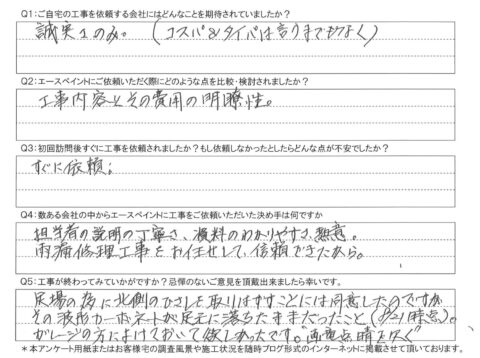 Q1：ご自宅の工事を依頼する会社にはどんなことを期待されていましたか？
誠実さのみ。（コスパ&タイパは言うまでもなく）
Q2：エースペイントにご依頼いただく際にどのような点を比較・検討されましたか？
工事内容とその費用の明瞭性。
Q3：初回訪問後すぐに工事を依頼されましたか？もし依頼しなかったとしたらどんな点が不安でしたか？
すぐに依頼。
Q4：数ある会社の中からエースペイントに工事をご依頼いただいた決め手は何ですか
担当者の説明の丁寧さ、資料のわかりやすさ、熱意。
雨漏修理工事をお任せして、信頼できたから。
Q5：工事が終わってみていかがですか？忌憚のないご意見を頂戴出来ましたら幸いです。
足場の為に北側のひさしを取りはずすことには同意したのですが、
その波形カーボネートが足元に落ちたままだったこと（時点）。
ガレージの方によけておいて欲しかったです。"画竜点睛を欠ぐ
＊本アンケート用紙またはお客様宅の調査風景や施工状況を随時ブログ形式のインターネットに掲載させて頂いております。